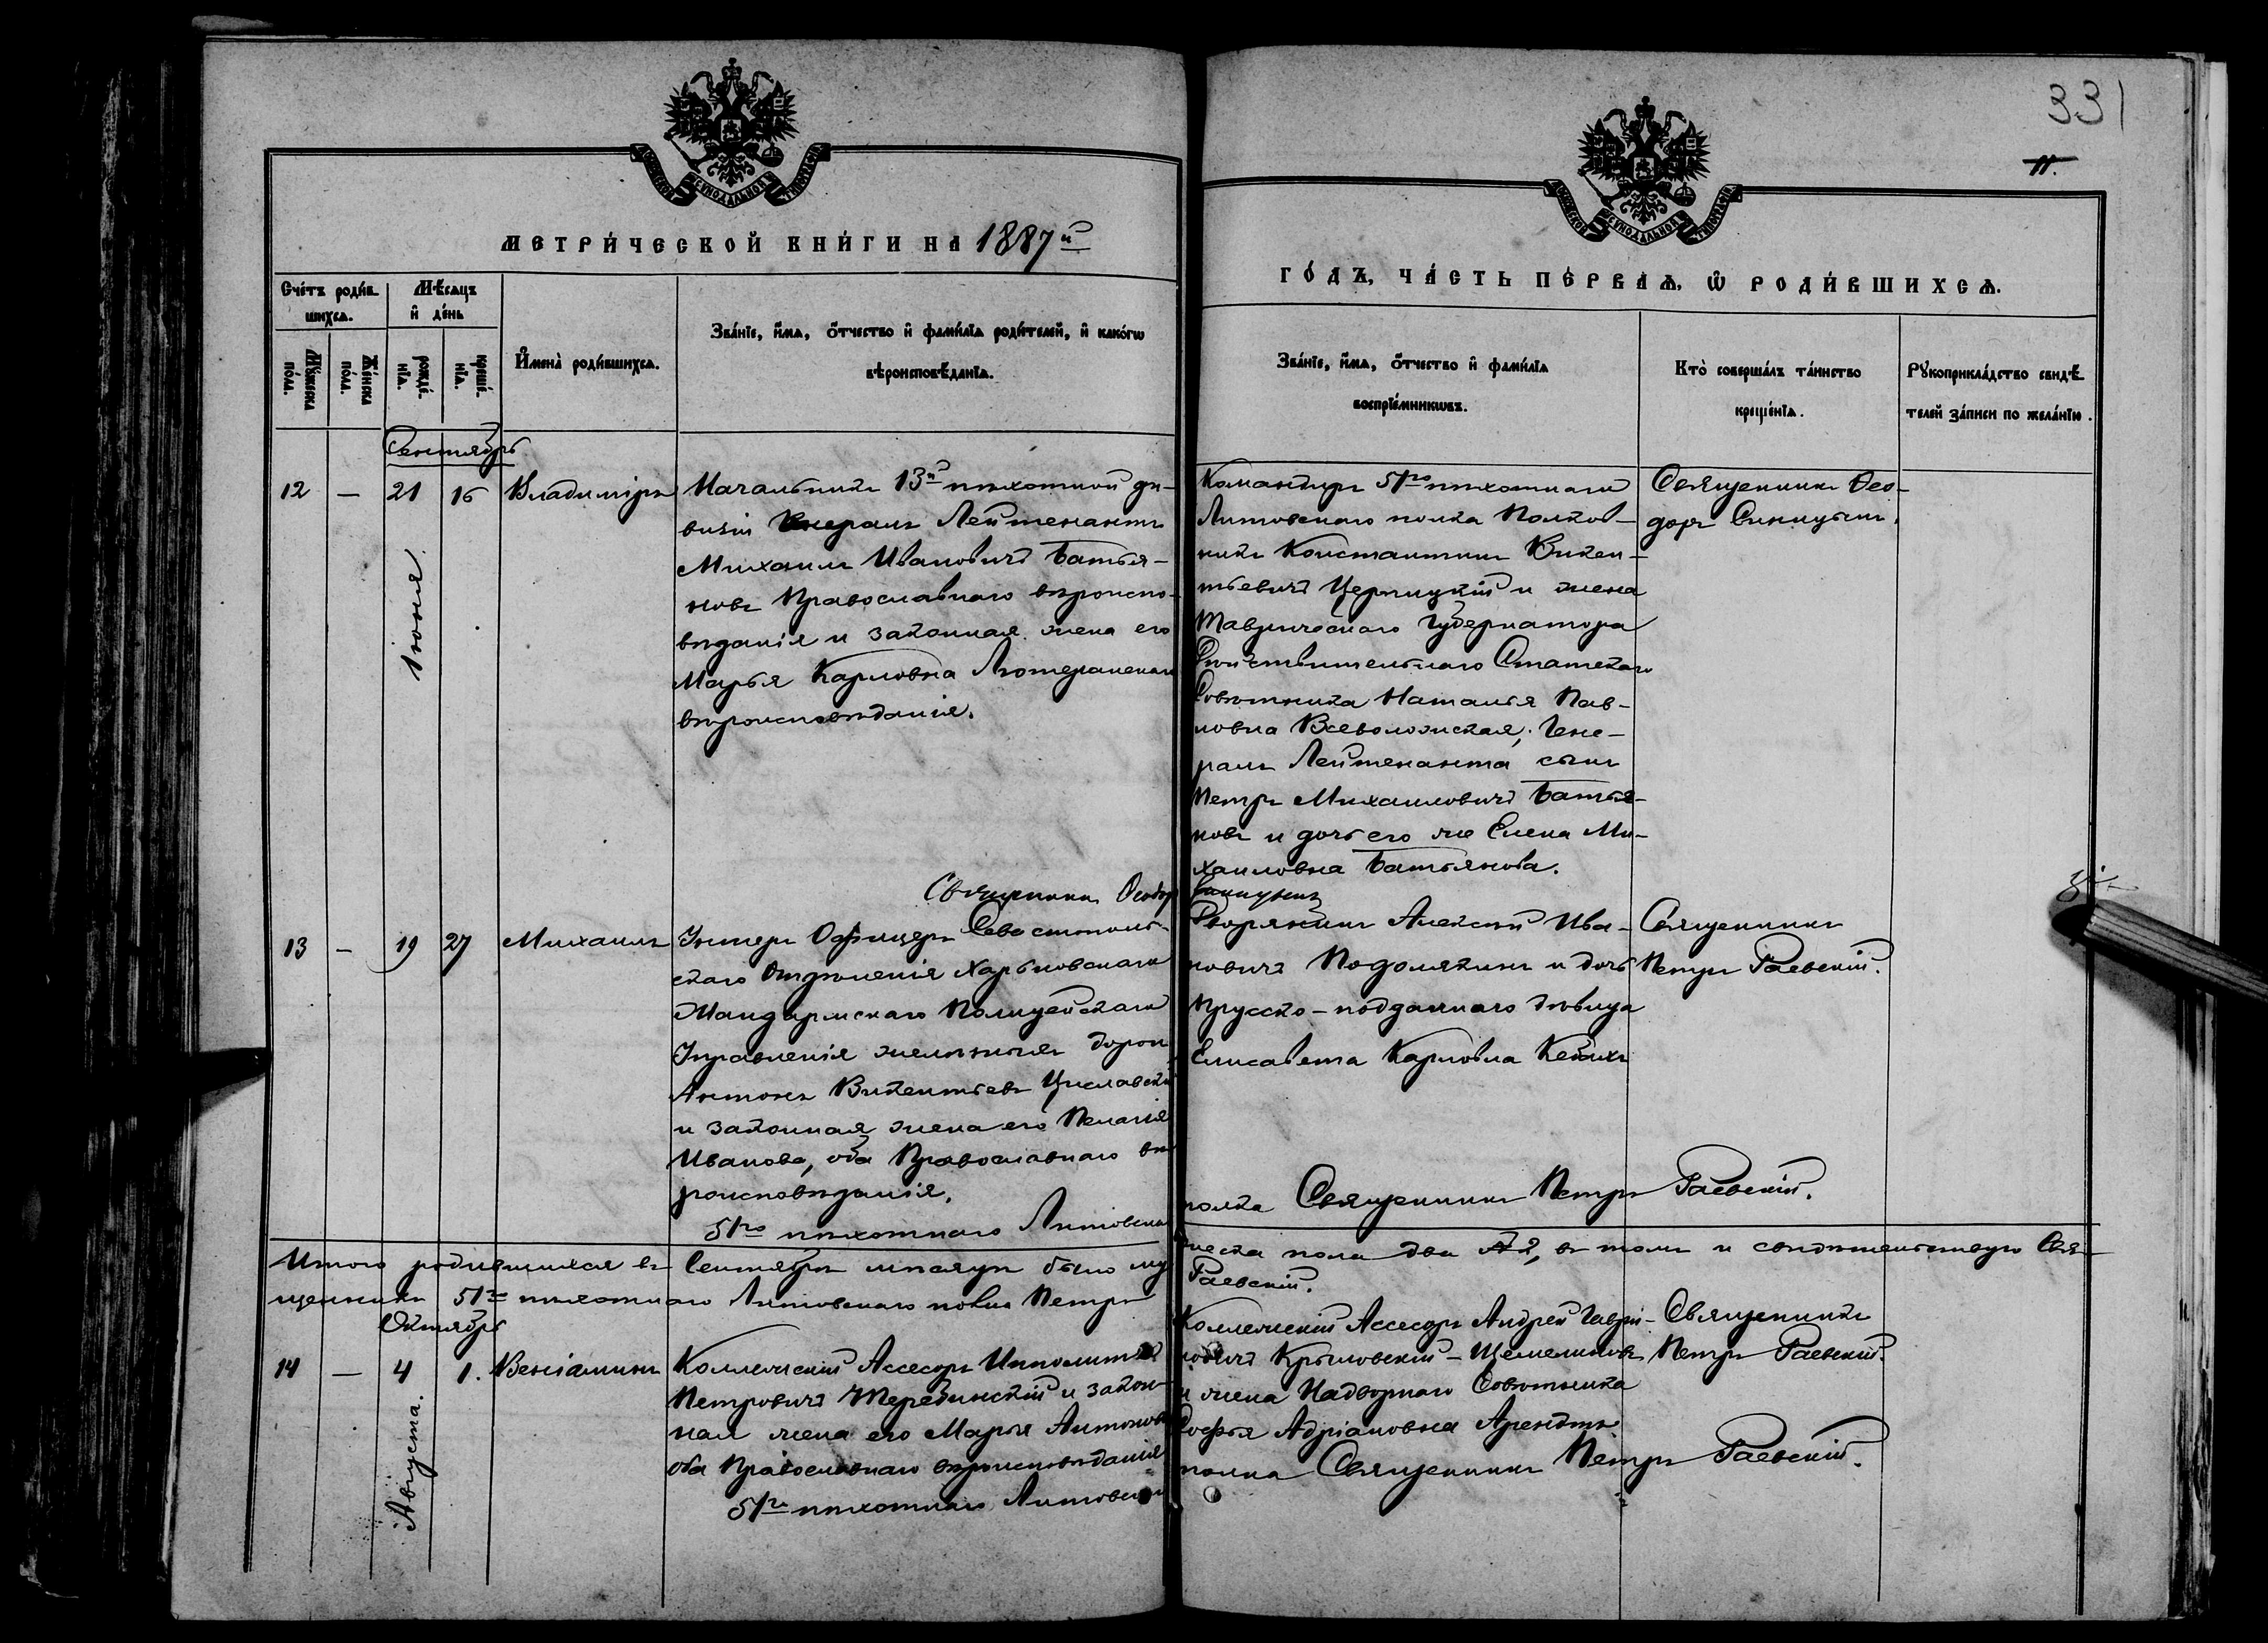 331
11.
МЕТРИ́ЧЕСКОЙ КНИ́ГИ НА 1887й
ГО́ДЪ, ЧА́СТЬ ПЕ́РВАѦ, Ѡ҆ РОДИ́ВШИХСѦ.
Сче́тъ роди́в-
шихсѧ.
Мꙋ́жеска по́ла.
Же́нска по́ла.
Мѣ́сѧцъ
и҆ де́нь
рожде́-нїѧ.
креще́-нїѧ.
И҆мена̀ роди́вшихсѧ.
Зва́нїе, и҆́мѧ, о҆́тчество и҆ фами́лїѧ роди́телей, и҆ како́гѡ
вѣроисповѣ́данїѧ.
Зва́нїе, и҆́мѧ, о҆́тчество и҆ фами́лїѧ
воспрїе́мникѡвъ.
Кто̀ соверша́лъ та́инство
креще́нїѧ.
Рꙋкоприкла́дство свидѣ́-
телей за́писи по жела́нїю.
Сентябрь
12 — 21 16 Владиміръ
Іюня.
Начальникъ 13й пѣхотной ди-
визіи Генералъ Лейтенантъ
Михаилъ Ивановичъ Батья-
новъ Православнаго вѣроиспо-
вѣданія и законная жена его
Марья Карловна Лютеранскаго
вѣроисповѣданія.
Командиръ 51го пѣхотнаго
Литовскаго полка Полков-
никъ Константинъ Викен-
тьевичъ Церпицкій и жена
Таврическаго Губернатора
Дѣйствительнаго Статскаго
Совѣтника Наталья Пав-
ловна Всеволожская; Гене-
ралъ Лейтенанта сынъ
Петръ Михаиловичъ Батья-
новъ и дочь его же Елена Ми-
хаиловна Батьянова.
Священникъ Ѳео-
доръ Синицынъ.
Священникъ Ѳеодоръ Синицынъ
13 — 19 27 Михаилъ
Унтеръ Офицеръ Севастополь-
скаго Отдѣленія Харьковскаго
Жандармскаго Полицейскаго
Управленія желѣзныхъ дорогъ
Антонъ Викентьевъ Цислав­скій
и законная жена его Пелагія
Иванова, оба Православнаго вѣ-
роисповѣданія.
Дворянинъ Алексѣй Ива-
новичъ Подолякинъ и дочь
Прусско-подданнаго дѣвица
Елисавета Карловна
Священникъ
Петръ Раевскій.
51го пѣхотнаго Литовскаго полка Священникъ Петръ Раевскій.
Итого родившихся въ Сентябрѣ мѣсяцѣ было мужеска пола два въ томъ и свидѣтельствую Свя-
щенникъ 51го пѣхотнаго Литовскаго полка Петръ Раевскій.
Октябрь
14 — 4 1. Веніаминъ
Августа.
Коллежскій Ассесоръ Ипполитъ
Петровичъ Теребинскій и закон-
ная жена его Марья Антоновна
оба Православнаго вѣроисповѣданія
Коллежскій Ассесоръ Андрей Гаври-
ловичъ Крыловскій-Щемелиновъ
и жена Надворнаго Совѣтника
Софья Адріановна Арендтъ
Священникъ
Петръ Раевскій.
51го пѣхотнаго Литовскаго полка Священникъ Петръ Раевскій.